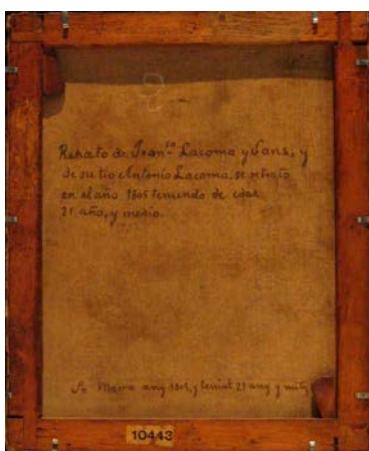 Retrato de Fran.co Lacoma y Sans, y
de su tio Antonio Lacoma, se retrató
en el año 1805 teniendo de edad
21 año, y medio.
any 1805, y tenint 21 any y mitx
10443